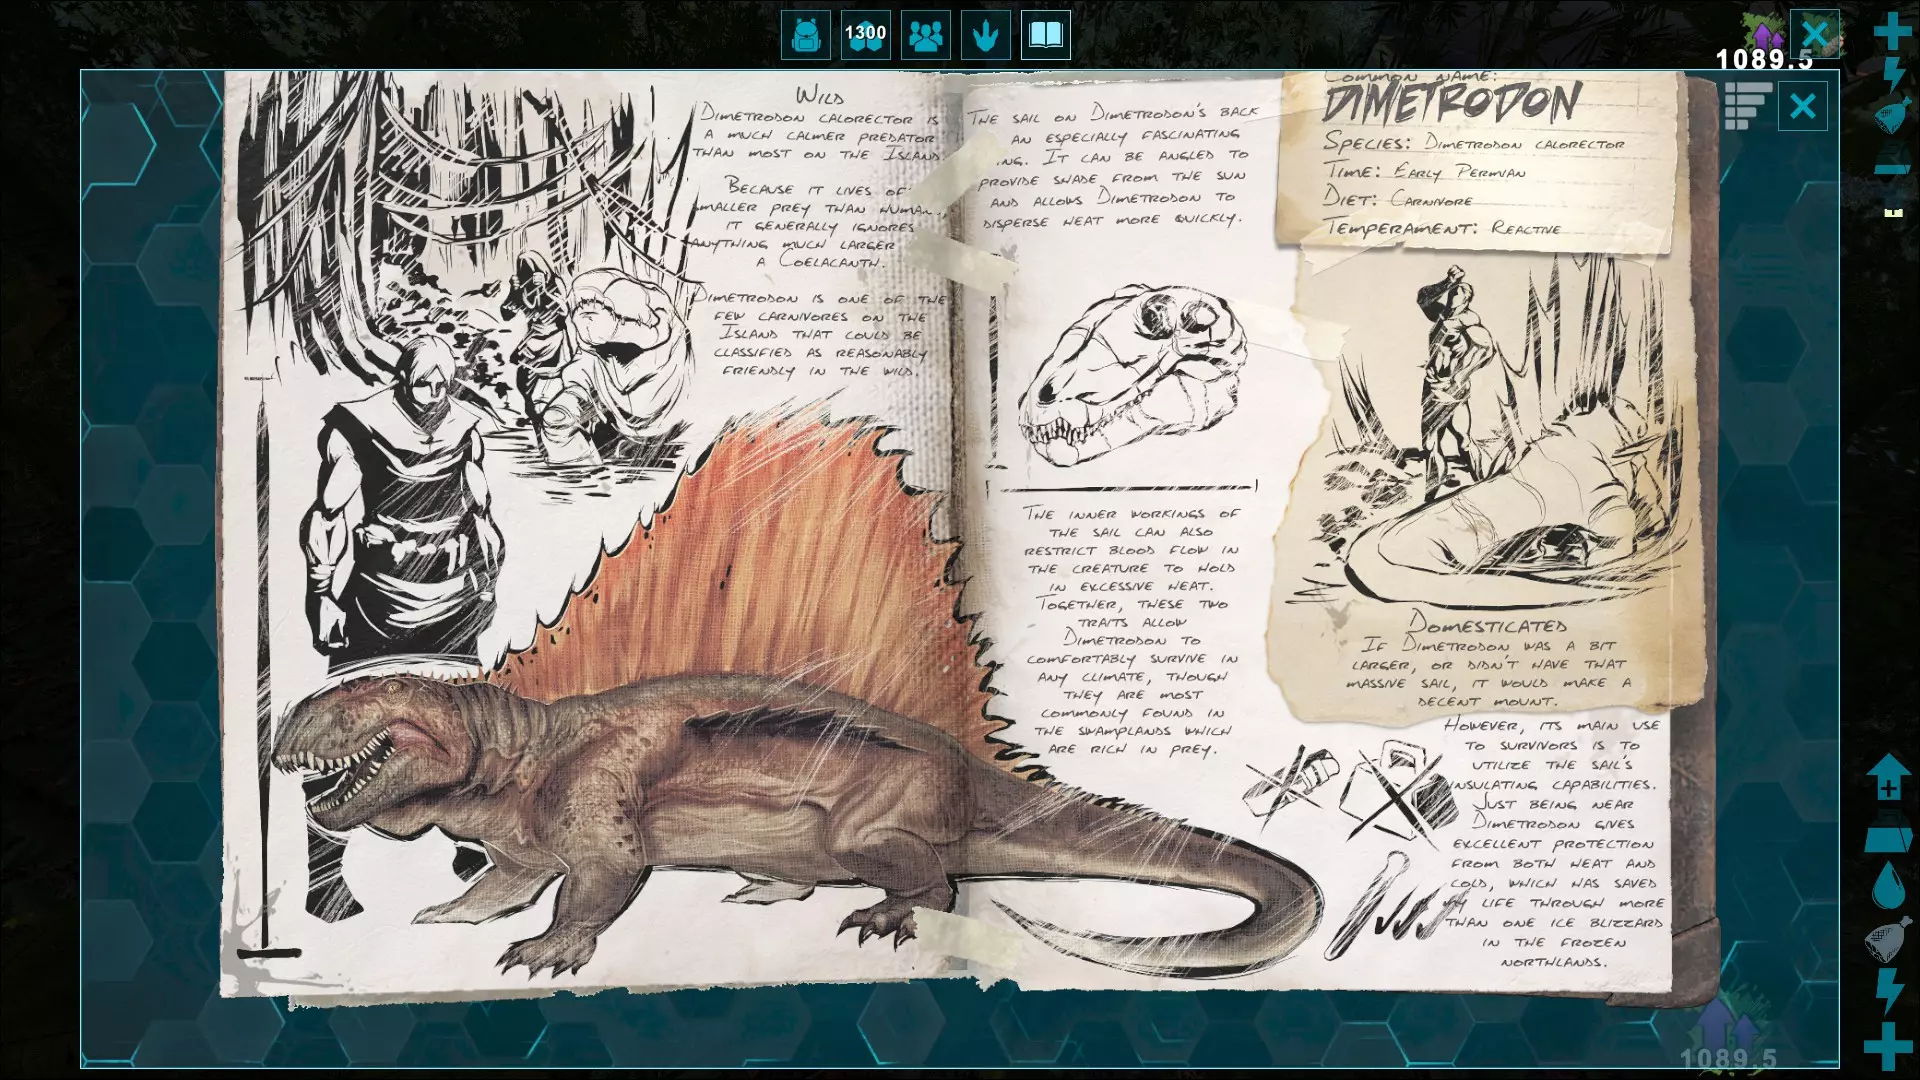 1300
1089.5
Wild
Dimetrodon calorector is
a much calmer predator
than most on the Island.
Because it lives of
smaller prey than human
it generally ignores
anything much larger
a Coelacanth.
Dimetrodon is one of the
few carnivores on the
Island that could be
classified as reasonably
friendly in the wild.
The sail on Dimetrodon's back
an especially fascinating
ing. It can be angled to
provide shade from the sun
and allows Dimetrodon to
disperse heat more quickly.
The inner workings of
the sail can also
restrict blood flow in
the creature to hold
in excessive heat.
Together, these two
traits allow
Dimetrodon to
comfortably survive in
any climate, though
they are most
commonly found in
the swamplands which
are rich in prey.
Common name:
DIMETRODON
Species: Dimetrodon calorector
Time: Early Permian
Diet: Carnivore
Temperament: Reactive
Domesticated
If Dimetrodon was a bit
larger, or didn't have that
massive sail, it would make a
decent mount.
However, its main use
to survivors is to
utilize the sail's
insulating capabilities.
Just being near
Dimetrodon gives
excellent protection
from both heat and
cold, which has saved
my life through more
than one ice blizzard
in the frozen
northlands.
1089.5